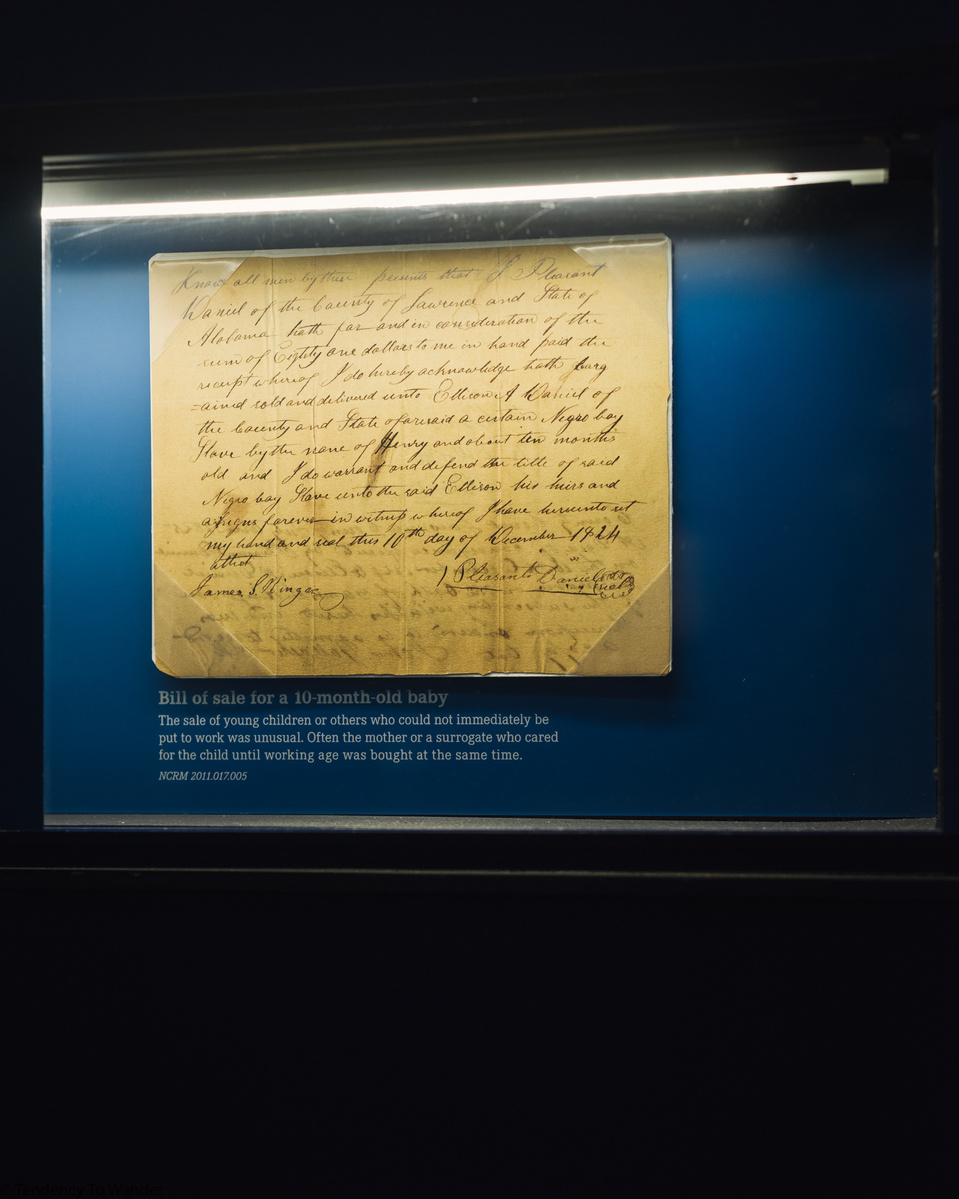 Know all men by these presents that I Pleasant
Daniel of the County of Lawrence and State of
Alabama hath for and in consideration of the
sum of Eighty one dollars to me in hand paid the
receipt whereof I do hereby acknowledge hath barg
=ained sold and delivered unto Ellison A Daniel of
the County and State aforesaid a certain Negro boy
Slave by the name of Henry and about ten months
old and I do warrant and defend the title of said
Negro boy Slave unto the said Ellison his heirs and
assigns forever in witness whereof I have hereunto set
my hand and seal this 10th day of December 1824
attest
James S. Pleasants Daniel
Bill of sale for a 10-month-old baby
The sale of young children or others who could not immediately be
put to work was unusual. Often the mother or a surrogate who cared
for the child until working age was bought at the same time.
NCRM 2011.017.005